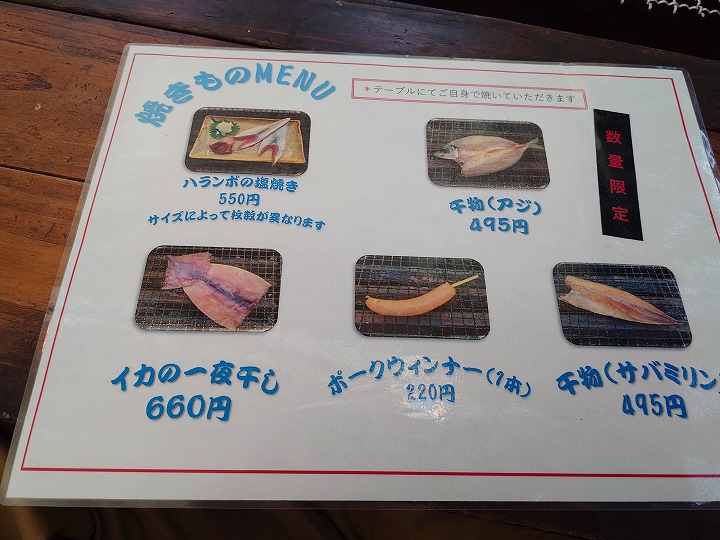 焼きものMENU
*テーブルにてご自身で焼いていただきます
数量限定
ハランボの塩焼き
550円
サイズによって枚数が異なります
干物(アジ)
495円
イカの一夜干し
660円
ポークウィンナー(1本)
220円
干物(サバミリン
495円